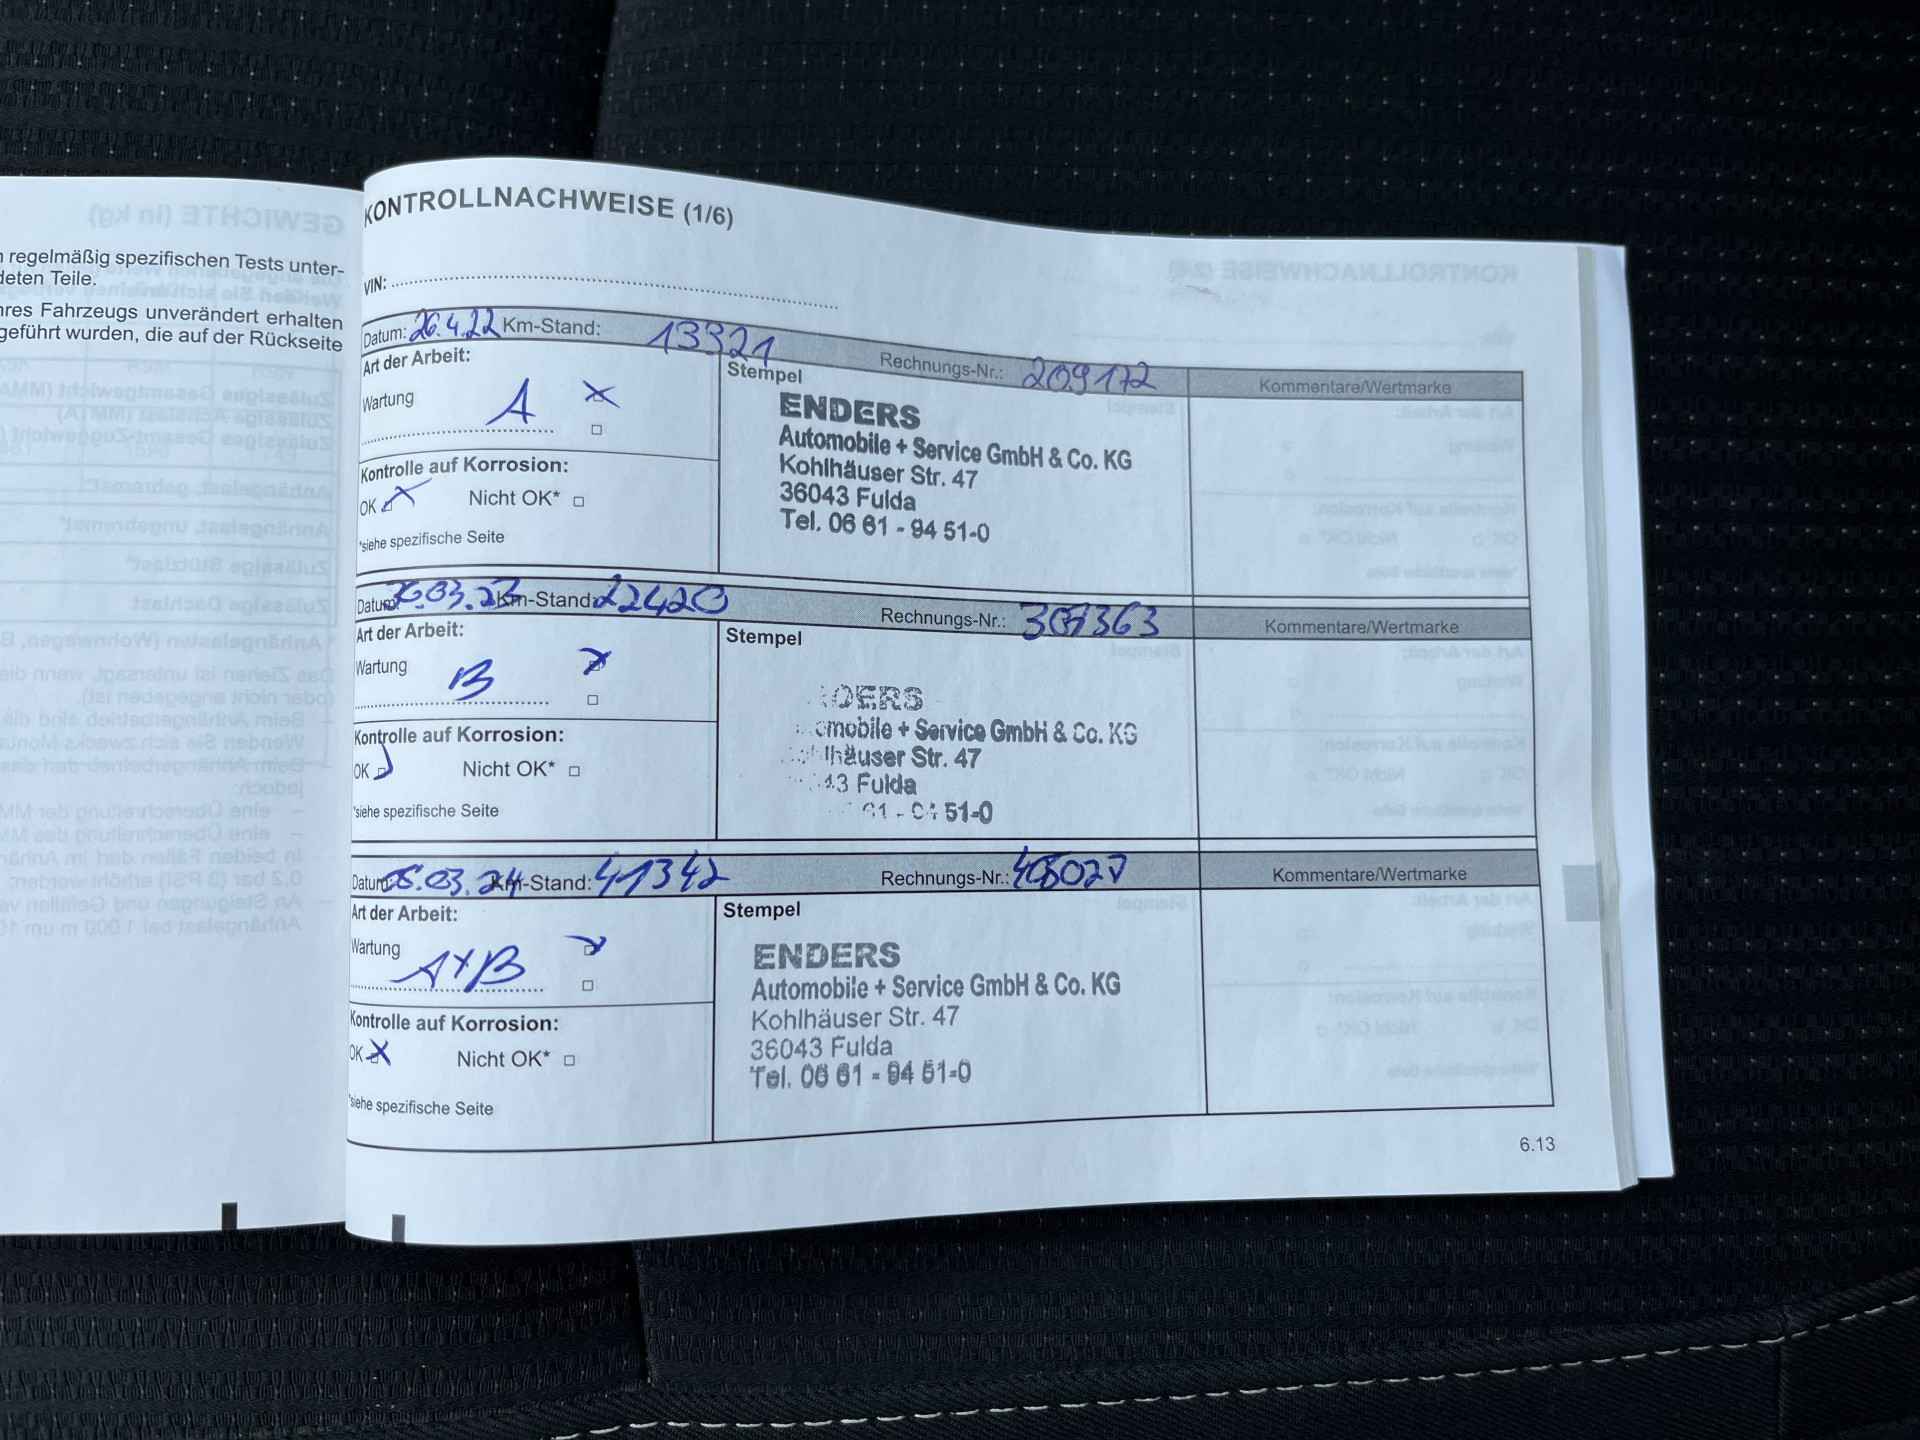 n regelmäßig spezifischen Tests unter-
deten Teile.
hres Fahrzeugs unverändert erhalten
geführt wurden, die auf der Rückseite
KONTROLLNACHWEISE (1/6)
VIN:
Datum: 26.4.22 Km-Stand: 13321 Rechnungs-Nr.: 209172 Kommentare/Wertmarke
Art der Arbeit:
Wartung A
Kontrolle auf Korrosion:
OK Nicht OK*
*siehe spezifische Seite
Stempel
ENDERS
Automobile + Service GmbH & Co. KG
Kohlhäuser Str. 47
36043 Fulda
Tel. 06 61 - 94 51-0
Datum: Km-Stand: 22420 Rechnungs-Nr.: Kommentare/Wertmarke
Art der Arbeit:
Wartung B
Kontrolle auf Korrosion:
OK Nicht OK*
*siehe spezifische Seite
Stempel
DERS
omobile + Service GmbH & Co. KG
lhäuser Str. 47
43 Fulda
61 - 94 51-0
Datum: Km-Stand: 41342 Rechnungs-Nr.: Kommentare/Wertmarke
Art der Arbeit:
Wartung A+B
Kontrolle auf Korrosion:
OK Nicht OK*
*siehe spezifische Seite
Stempel
ENDERS
Automobile + Service GmbH & Co. KG
Kohlhäuser Str. 47
36043 Fulda
Tel. 06 61 - 94 51-0
6.13